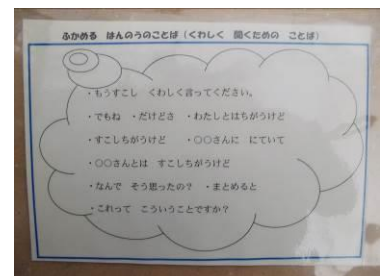 ふかめる はんのうのことば(くわしく 聞くための ことば)
・もうすこし くわしく言ってください。
・でもね ・だけどさ ・わたしとはちがうけど
・すこしちがうけど ・○○さんに にていて
・○○さんとは すこしちがうけど
・なんで そう思ったの? ・まとめると
・これって こういうことですか?